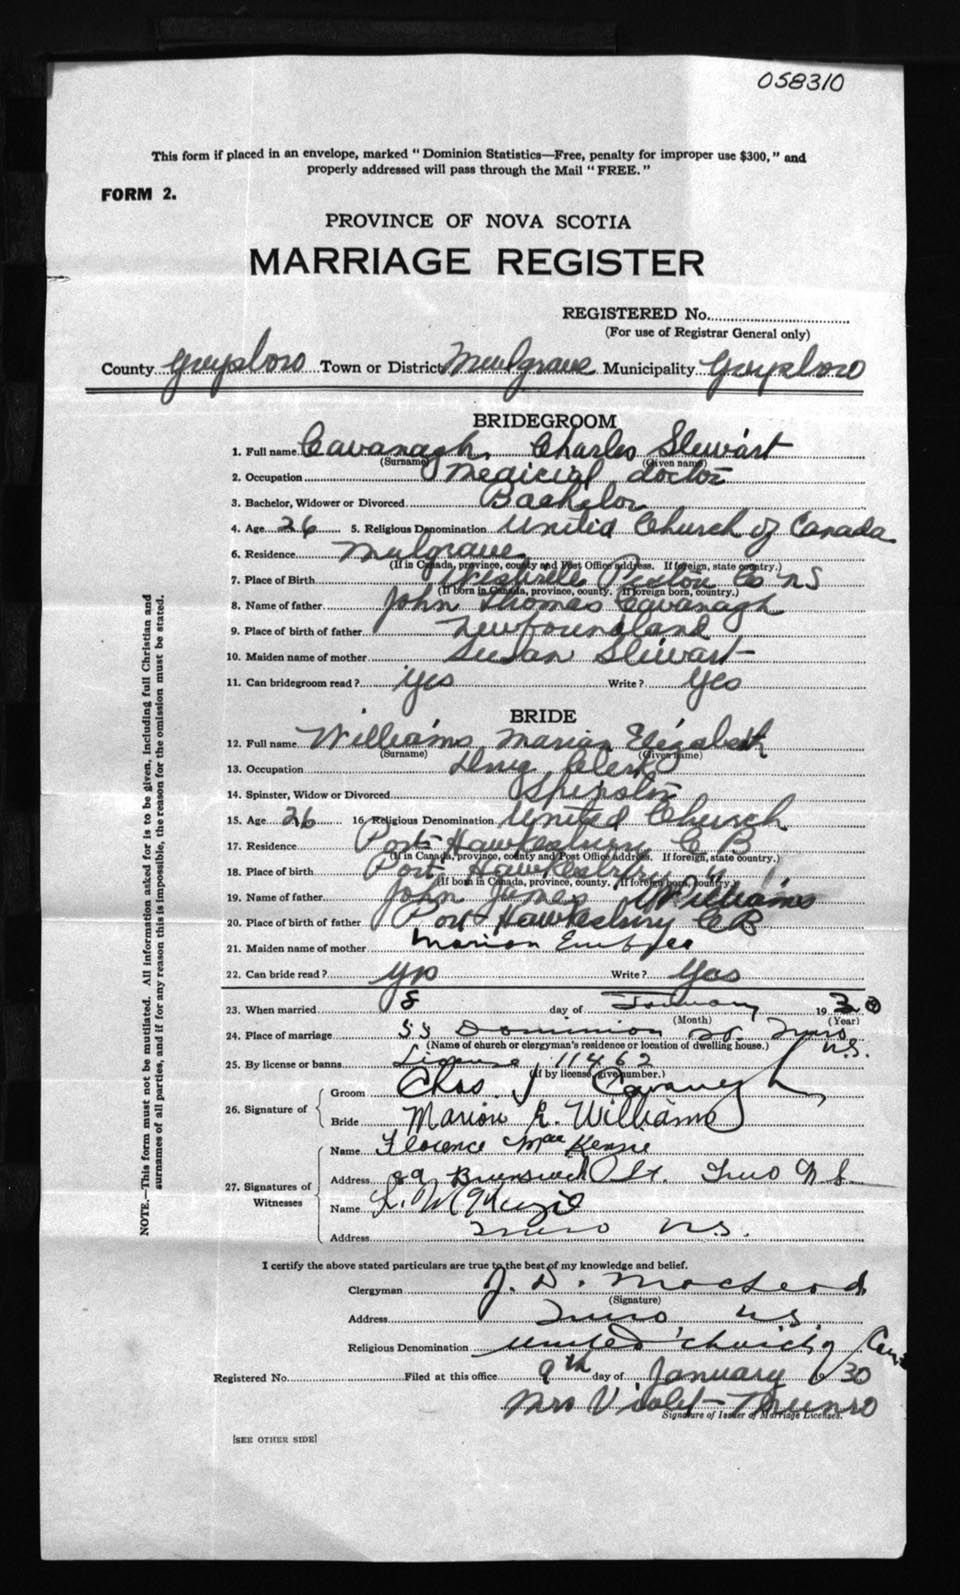 058310
This form if placed in an envelope, marked "Dominion Statistics—Free, penalty for improper use $300," and
properly addressed will pass through the Mail "FREE."
FORM 2.
PROVINCE OF NOVA SCOTIA
MARRIAGE REGISTER
REGISTERED No.
(For use of Registrar General only)
County Guysboro Town or District Mulgrave Municipality Guysboro
BRIDEGROOM
1. Full name Cavanagh, Charles Stewart
(Surname) (Given name)
2. Occupation Medicial doctor
3. Bachelor, Widower or Divorced Bachelor
4. Age 26 5. Religious Denomination United Church of Canada
6. Residence Mulgrave
(If in Canada, province, county and Post Office address. If foreign, state country.)
7. Place of Birth Westville Pictou Co NS
(If born in Canada, province, county. If foreign born, country.)
8. Name of father John Thomas Cavanagh
9. Place of birth of father Newfoundland
10. Maiden name of mother Susan Stewart
11. Can bridegroom read? Yes Write? Yes
BRIDE
12. Full name Williams Marian Elizabeth
(Surname) (Given name)
13. Occupation Drug Clerk
14. Spinster, Widow or Divorced Spinster
15. Age 26 16. Religious Denomination United Church
17. Residence Port Hawkesbury C B
(If in Canada, province, county and Post Office address. If foreign, state country.)
18. Place of birth Port Hawkesbury " "
(If born in Canada, province, county. If foreign born, country.)
19. Name of father John James Williams
20. Place of birth of father Port Hawkesbury CB
21. Maiden name of mother Marion Embree
22. Can bride read? Yes Write? Yes
23. When married 8 day of January 1930
(Month) (Year)
24. Place of marriage 55 Dominion St. Truro N.S.
(Name of church or clergyman's residence or location of dwelling house.)
25. By license or banns License 11462
(If by license, give number.)
26. Signature of
Groom Chas. Cavanagh
Bride Marion E. Williams
27. Signatures of Witnesses
Name Florence MacKenzie
Address 89 Brunswick St. Truro N.S.
Name L. McKenzie
Address Truro N.S.
I certify the above stated particulars are true to the best of my knowledge and belief.
Clergyman J. D. MacLeod
(Signature)
Address Truro N.S.
Religious Denomination United Church of Can
Registered No. Filed at this office 9th day of January 30
Mrs Violet Munro
Signature of Issuer of Marriage Licenses.
[SEE OTHER SIDE]
NOTE.—This form must not be mutilated. All information asked for is to be given, including full Christian and
surnames of all parties, and if for any reason this is impossible, the reason for the omission must be stated.